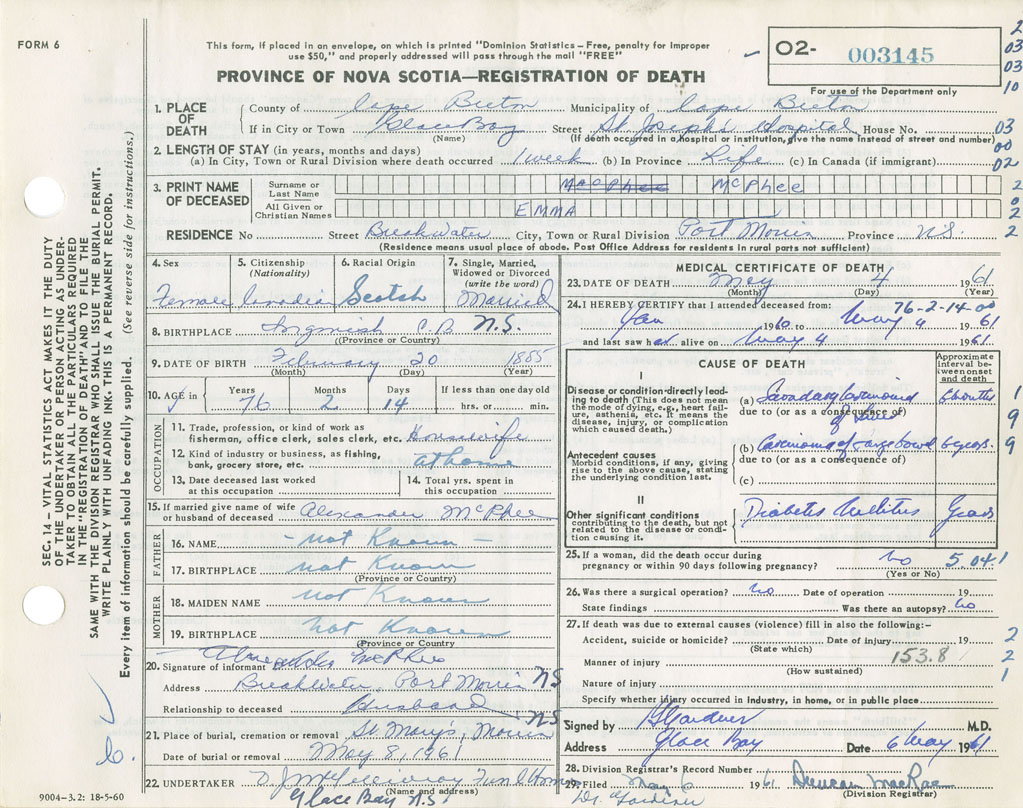 FORM 6
This form, if placed in an envelope, on which is printed "Dominion Statistics – Free, penalty for improper
use $50," and properly addressed will pass through the mail "FREE"
PROVINCE OF NOVA SCOTIA—REGISTRATION OF DEATH
O2- 003145
For use of the Department only
2
03
03
10
1. PLACE OF DEATH
County of Cape Breton Municipality of Cape Breton
If in City or Town Glace Bay Street St Joseph's Hospital House No.
(Name) (If death occurred in a hospital or institution, give the name instead of street and number)
03
00
02
2. LENGTH OF STAY (in years, months and days)
(a) In City, Town or Rural Division where death occurred 1 week (b) In Province Life (c) In Canada (if immigrant)
3. PRINT NAME OF DECEASED
Surname or Last Name MacPhee McPhee
All Given or Christian Names EMMA
2
0
2
2
RESIDENCE No Street Birchwater City, Town or Rural Division Port Morien Province N.S.
(Residence means usual place of abode. Post Office Address for residents in rural parts not sufficient)
4. Sex Female
5. Citizenship (Nationality) Canadian
6. Racial Origin Scotch
7. Single, Married, Widowed or Divorced (write the word) Married
8. BIRTHPLACE Ingonish C.B. N.S.
(Province or Country)
9. DATE OF BIRTH February 20 1885
(Month) (Day) (Year)
10. AGE in Years 76 Months 2 Days 14 If less than one day old
hrs. or min.
OCCUPATION
11. Trade, profession, or kind of work as
fisherman, office clerk, sales clerk, etc. Housewife
12. Kind of industry or business, as fishing,
bank, grocery store, etc. at home
13. Date deceased last worked at this occupation
14. Total yrs. spent in this occupation
15. If married give name of wife
or husband of deceased Alexander McPhee
FATHER
16. NAME - Not Known -
17. BIRTHPLACE Not Known
(Province or Country)
MOTHER
18. MAIDEN NAME Not Known
19. BIRTHPLACE Not Known
(Province or Country)
20. Signature of informant Alexander McPhee
Address Birchwater, Port Morien NS
Relationship to deceased Husband
21. Place of burial, cremation or removal St Mary's, Morien NS
Date of burial or removal May 8, 1961
22. UNDERTAKER
(Name and address)
Glace Bay N.S.
MEDICAL CERTIFICATE OF DEATH
23. DATE OF DEATH May 4 1961
(Month) (Day) (Year)
24. I HEREBY CERTIFY that I attended deceased from: 76-2-14-00
Jan 1960 to May 4 1961
and last saw her alive on May 4 1961
CAUSE OF DEATH
Approximate interval between onset and death
I
Disease or condition directly leading to death (This does not mean
the mode of dying, e.g., heart failure, asthenia, etc. It means the
disease, injury, or complication
which caused death.)
(a) Secondary Carcinoma of Liver 6 months
due to (or as a consequence of)
Antecedent causes
Morbid conditions, if any, giving
rise to the above cause, stating
the underlying condition last.
(b) Carcinoma of Large bowel
due to (or as a consequence of)
(c)
1
9
9
II
Other significant conditions
contributing to the death, but not
related to the disease or condition causing it.
Diabetes Mellitus Years
25. If a woman, did the death occur during
pregnancy or within 90 days following pregnancy? No 5.041
(Yes or No)
26. Was there a surgical operation? No Date of operation 19
State findings Was there an autopsy? No
27. If death was due to external causes (violence) fill in also the following:–
Accident, suicide or homicide? Date of injury 19
(State which)
Manner of injury 153.8
(How sustained)
Nature of injury
Specify whether injury occurred in industry, in home, or in public place
2
2
1
Signed by Gardner M.D.
Address Glace Bay Date 6 May 1961
28. Division Registrar's Record Number
29. Filed May 6 1961 Duncan MacRae
(Division Registrar)
Dr. Gardner
SEC. 14 – VITAL STATISTICS ACT MAKES IT THE DUTY
OF THE UNDERTAKER OR PERSON ACTING AS UNDERTAKER TO OBTAIN ALL THE PARTICULARS REQUIRED
IN THE "REGISTRATION OF DEATH" AND TO FILE THE
SAME WITH THE DIVISION REGISTRAR WHO SHALL ISSUE THE BURIAL PERMIT.
WRITE PLAINLY WITH UNFADING INK. THIS IS A PERMANENT RECORD.
Every item of information should be carefully supplied. (See reverse side for instructions.)
6.
9004–3.2: 18-5-60